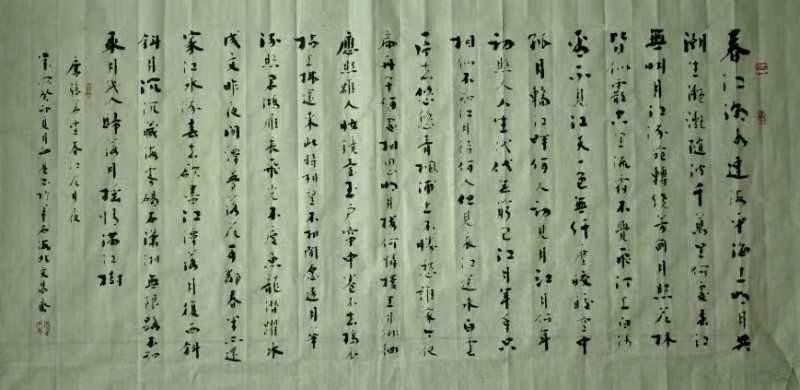 春江潮水連海平海上明月共
潮生灔灔隨波千萬里何處春江
無明月江流宛轉繞芳甸月照花林
皆似霰空里流霜不覺飛汀上白沙
看不見江天一色無纤塵皎皎空中
孤月輪江畔何人初見月江月何年
初照人人生代代無窮已江月年年只
相似不知江月待何人但見長江送水白雲
一片去悠悠青楓浦上不勝愁誰家今夜
扁舟子何處相思明月樓可憐樓上月徘徊
應照離人妝鏡臺玉戶帘中卷不去搗衣
砧上拂還來此時相望不相聞愿逐月華
流照君鴻雁長飛光不度魚龍潛躍水
成文昨夜閒潭夢落花可憐春半不還
家江水流春去欲盡江潭落月復西斜
斜月沉沉藏海霧碣石瀟湘無限路不知
乘月幾人歸落月搖情滿江樹
唐張若虛春江花月夜
癸卯